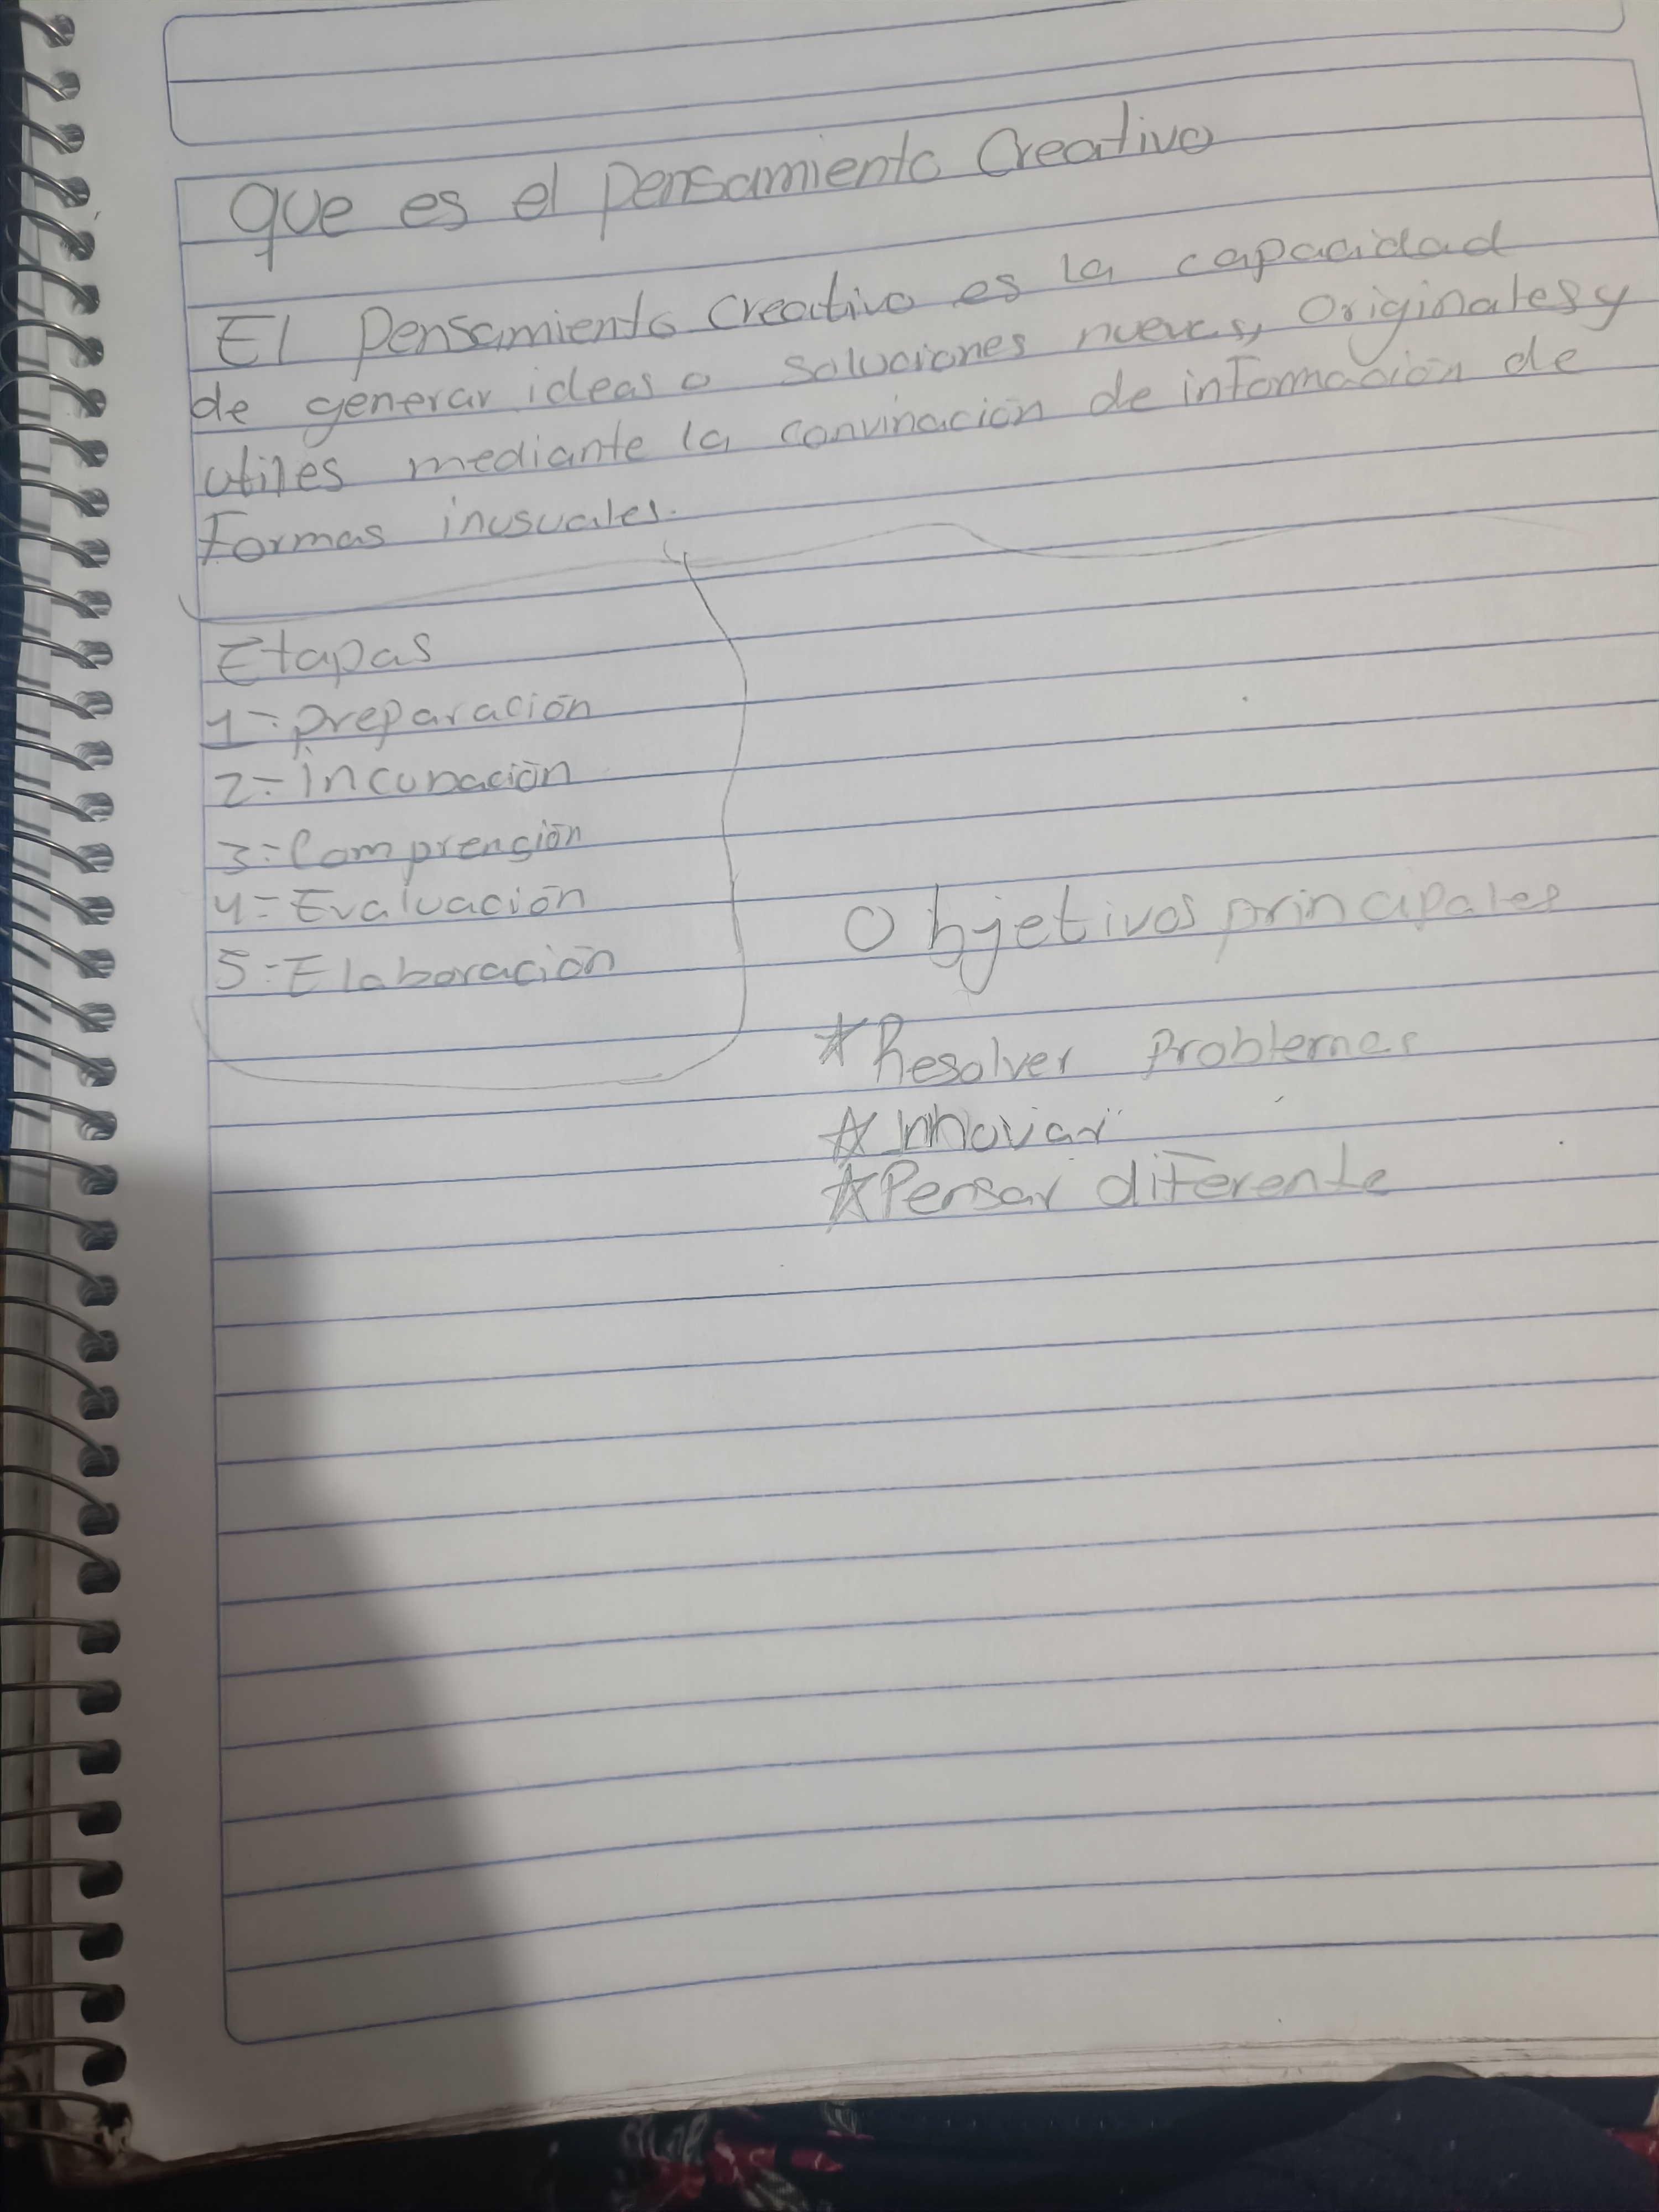 que es el pensamiento Creativo
El pensamiento creativo es la capacidad
de generar ideas o soluciones nuevas, originales y
utiles mediante la convinación de información de
Formas inusuales.
Etapas
1=preparación
2=incubación
3=Comprensión
4=Evaluación
5=Elaboración
Objetivos principales
*Resolver problemas
*Innovar
*Pensar diferente